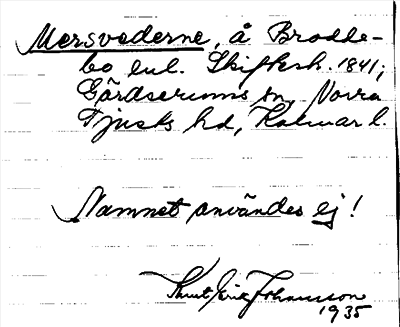 Mersvederne, å Brodde-
bo enl. Skiftesh. 1841;
Gärdserums sn, Norra
Tjusts hd, Kalmar l.
Namnet användes ej!
Knut Eric Johansson
1935